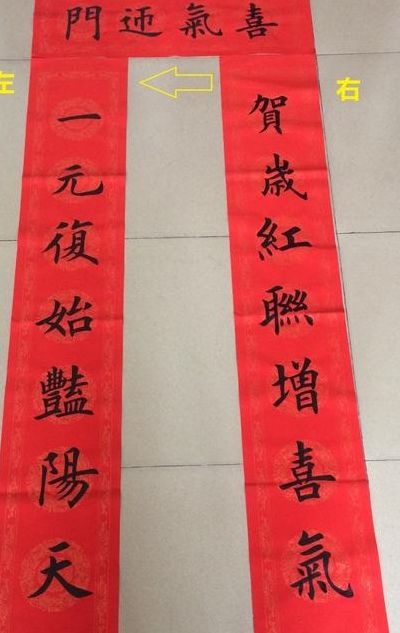 喜氣迎門
右
賀歲紅聯增喜氣
左
一元復始豔陽天